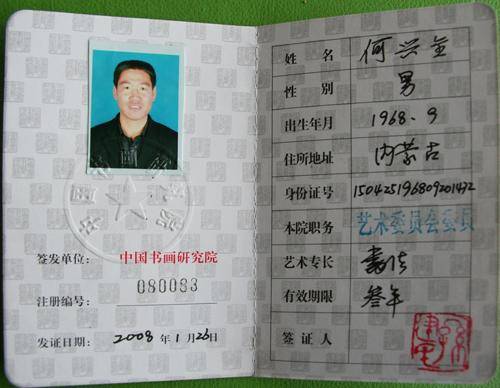 签发单位: 中国书画研究院
注册编号: 080083
发证日期: 2008 年 1 月 26 日
姓名 何兴全
性别 男
出生年月 1968-9
住所地址 内蒙古
身份证号 150425196809201472
本院职务 艺术委员会委员
艺术专长 书法
有效期限 叁年
签证人